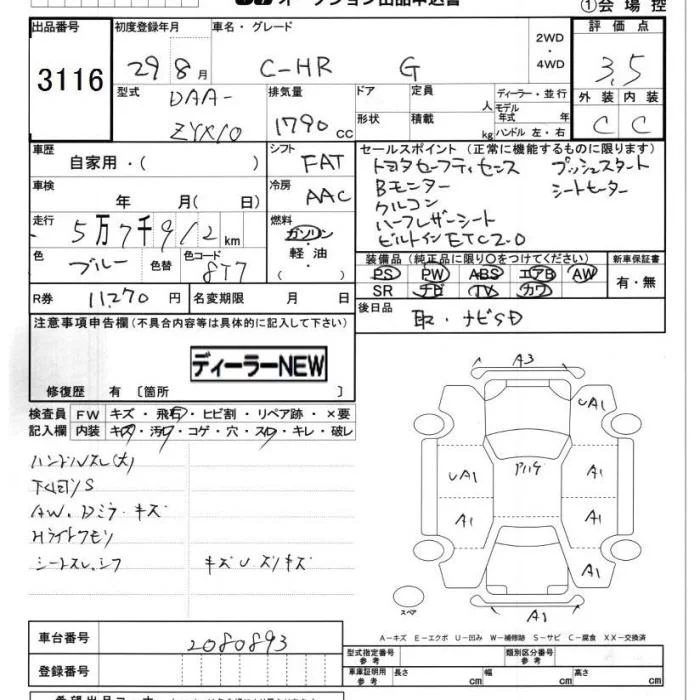 ①会場控
出品番号 初度登録年月 車名・グレード 2WD・4WD 評価点
3116 29 8月 C-HR G 3.5
型式 排気量 ドア 定員 人 ディーラー・並行 外装 内装
DAA-ZYX10 1790 cc 形状 積載 kg モデル年式 年 ハンドル 左・右 C C
車歴 自家用・( ) シフト FAT セールスポイント (正常に機能するものに限ります)
トヨタセーフティセンス プッシュスタート
車検 年 月( 日) 冷房 AAC Bモニター シートヒーター
クルコン
走行 5万7千912km 燃料 ガソリン・軽油・ ハーフレザーシート
ビルトインETC2.0
色 ブルー 色替 色コード 8T7 装備品 (純正品に限り○をつけてください) 新車保証書
PS PW ABS エアB AW 有・無
SR ナビ TV カワ
R券 11270円 名変期限 月 日 後日品 取・ナビSD
注意事項申告欄(不具合内容等は具体的に記入して下さい)
ディーラーNEW
修復歴 有 〔箇所 〕
検査員 FW キズ・飛石・ヒビ割・リペア跡・×要
記入欄 内装 キズ・汚レ・コゲ・穴・スレ・キレ・破レ
ハンドルスレ(大)
下回りS
AW、Dミラーキズ
Hライトクモリ
シートスレ、シワ キズUズリキズ
A3
UA1
UA1 A1
A1 A1
A1
A1
スペア
A-キズ E-エクボ U-凹み W-補修跡 S-サビ C-腐食 XX-交換済
車台番号 2080893
型式指定番号 参考 類別区分番号 参考
登録番号 車庫証明用 参考 長さ cm 幅 cm 高さ cm